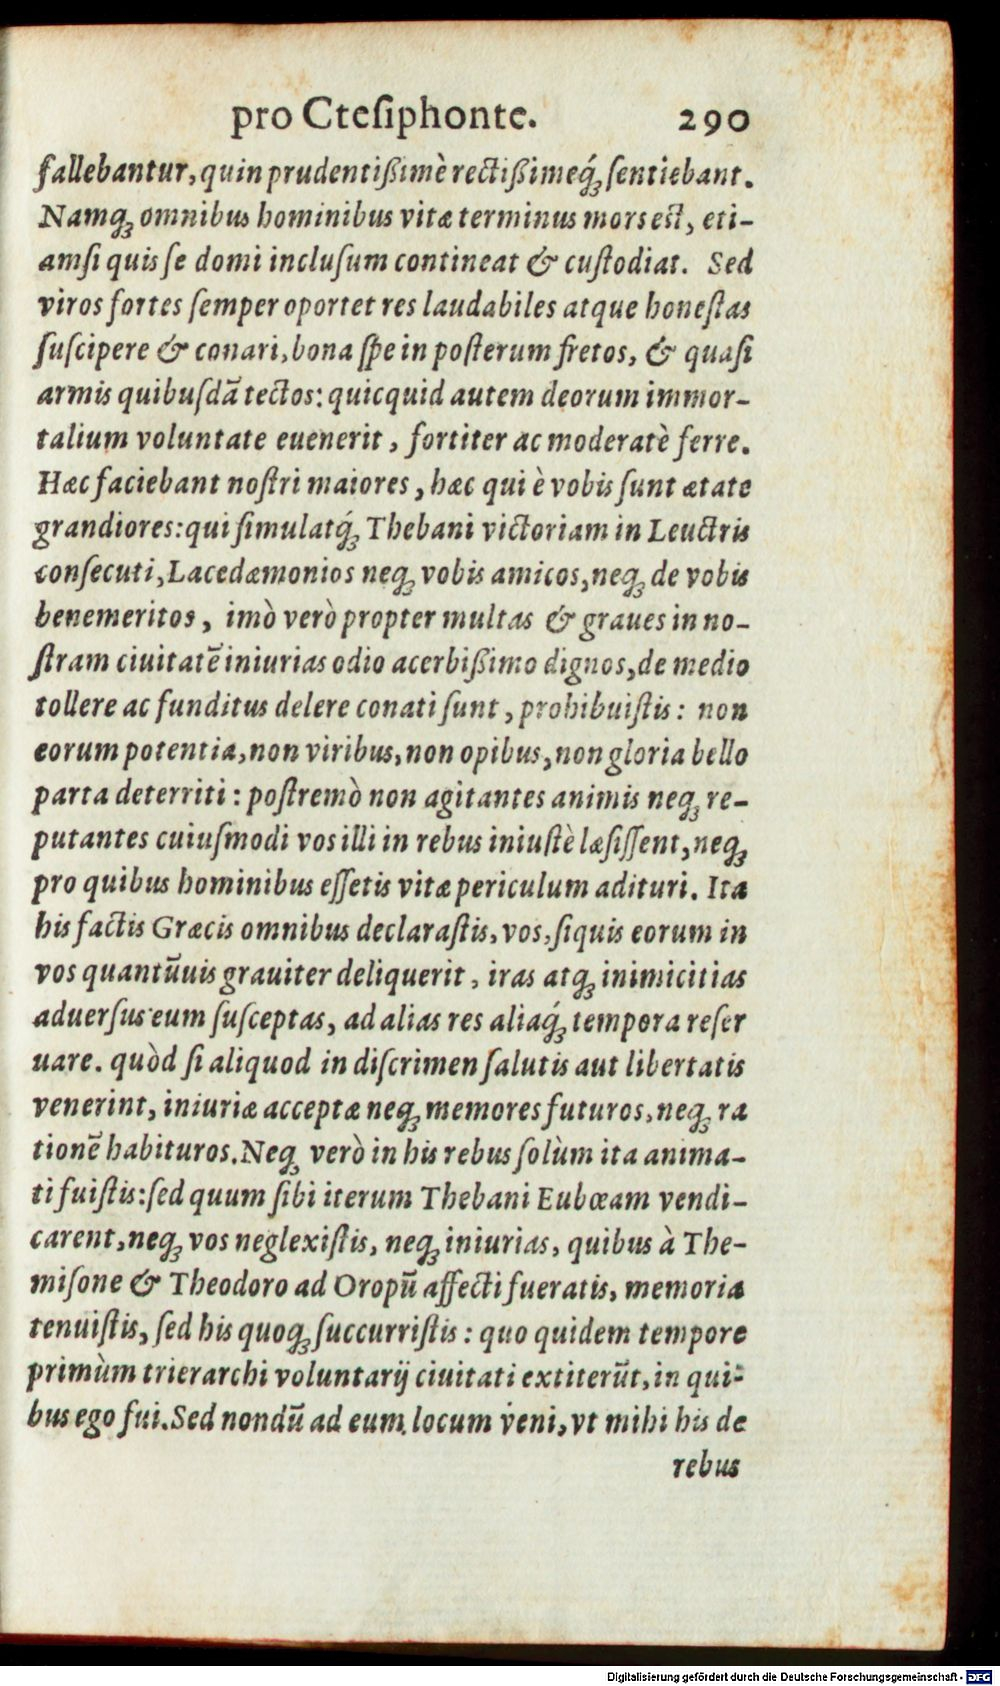 pro Cteſiphonte. 290
fallebantur, quin prudentißimè rectißimeq́ꝫ ſentiebant.
Namqꝫ omnibus hominibus vitæ terminus mors est, eti-
amſi quis ſe domi incluſum contineat & cuſtodiat. Sed
viros fortes ſemper oportet res laudabiles atque honeſtas
ſuſcipere & conari, bona ſpe in poſterum fretos, & quaſi
armis quibuſdā tectos: quicquid autem deorum immor-
talium voluntate euenerit, fortiter ac moderatè ferre.
Hæc faciebant noſtri maiores, hæc qui è vobis ſunt ætate
grandiores: qui ſimulatq́ꝫ Thebani victoriam in Leuctris
conſecuti, Lacedæmonios neqꝫ vobis amicos, neqꝫ de vobis
benemeritos, imò verò propter multas & graues in no-
ſtram ciuitatē iniurias odio acerbißimo dignos, de medio
tollere ac funditus delere conati ſunt, prohibuiſtis: non
eorum potentia, non viribus, non opibus, non gloria bello
parta deterriti: poſtremò non agitantes animis neqꝫ re-
putantes cuiuſmodi vos illi in rebus iniuſtè læſiſſent, neqꝫ
pro quibus hominibus eſſetis vitæ periculum adituri. Ita
his factis Græcis omnibus declaraſtis, vos, ſiquis eorum in
vos quantūuis grauiter deliquerit, iras atqꝫ inimicitias
aduerſus eum ſuſceptas, ad alias res aliaq́ꝫ tempora reſer
uare. quòd ſi aliquod in diſcrimen ſalutis aut libertatis
venerint, iniuriæ acceptæ neqꝫ memores futuros, neqꝫ ra
tionē habituros. Neqꝫ verò in his rebus ſolùm ita anima-
ti fuiſtis: ſed quum ſibi iterum Thebani Eubœam vendi-
carent, neqꝫ vos neglexiſtis, neqꝫ iniurias, quibus à The-
miſone & Theodoro ad Oropū affecti fueratis, memoria
tenuiſtis, ſed his quoqꝫ ſuccurriſtis: quo quidem tempore
primùm trierarchi voluntarij ciuitati extiterūt, in qui-
bus ego fui. Sed nondū ad eum locum veni, vt mihi his de
rebus
Digitalisierung gefördert durch die Deutsche Forschungsgemeinschaft - DFG